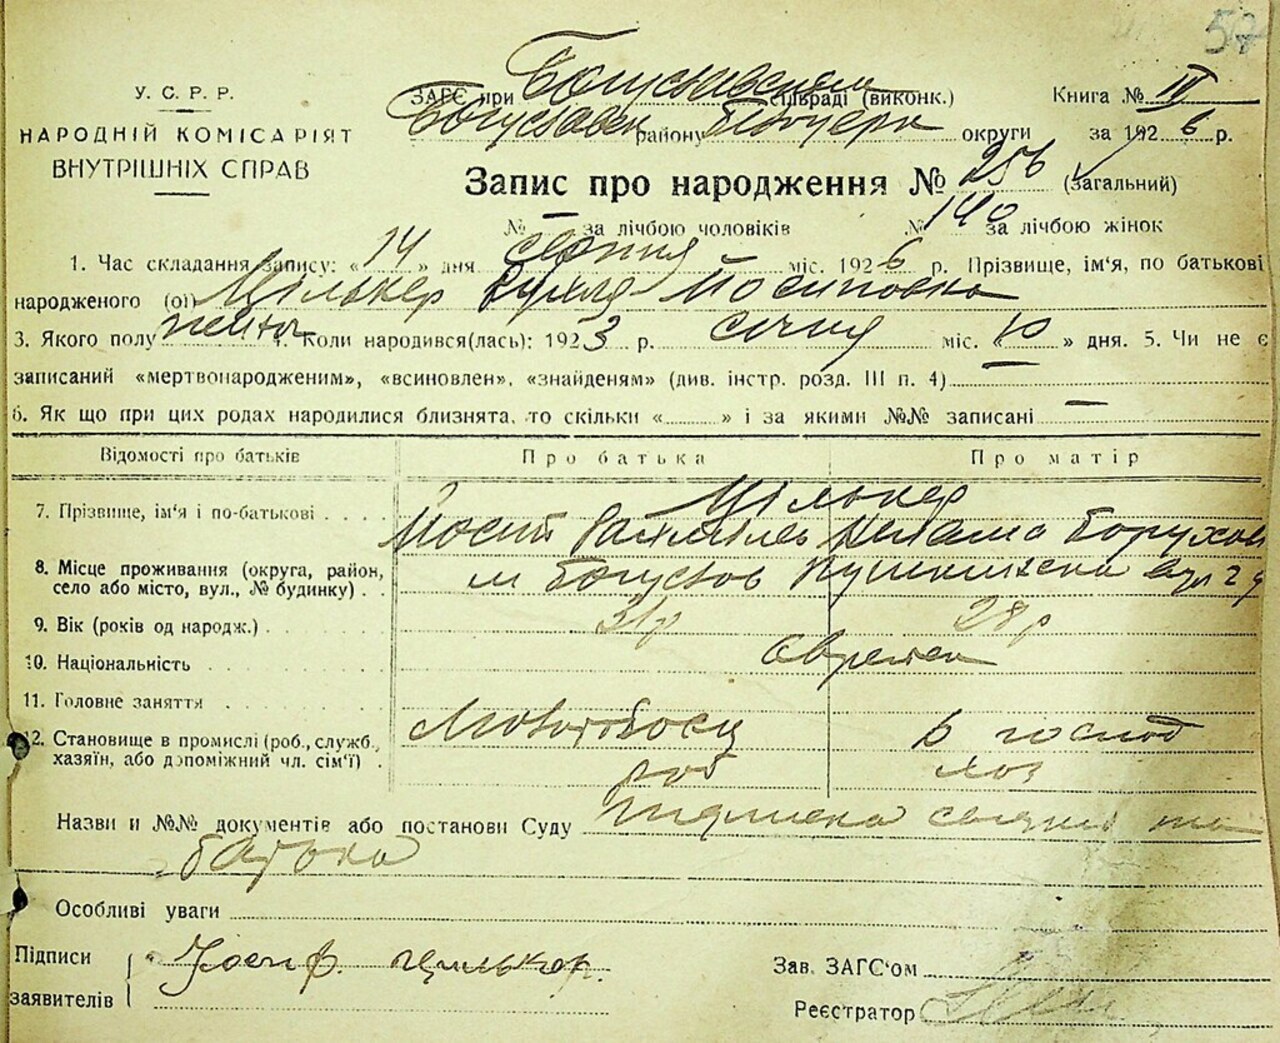 57
У. С. Р. Р.
НАРОДНІЙ КОМІСАРІЯТ
ВНУТРІШНІХ СПРАВ
ЗАГС при Богуславськім сільраді (виконк.) Книга № IV
Богуславськ району Білоцерк округи за 1926 р.
Запис про народження № 256 (загальний)
№ — за лічбою чоловіків № 140 за лічбою жінок
1. Час складання запису: «14» дня серпня міс. 1926 р. Прізвище, ім'я, по батькові
народженого (ої) Цількер Йосиповна
3. Якого полу жіноч 4. Коли народився(лась): 1923 р. січня міс. «10» дня. 5. Чи не є
записаний «мертвонародженим», «всиновлен», «знайденям» (див. інстр. розд. III п. 4) —
6. Як що при цих родах народилися близнята, то скільки «......» і за якими №№ записані —
Відомості про батьків Про батька Про матір
7. Прізвище, ім'я і по-батькові Цількер
Йосип Борухов
8. Місце проживання (округа, район, село або місто, вул., № будинку) м Богуслав Пушкинська вул 29
9. Вік (років од народж.) 31р 28р
10. Національність Євреєк
11. Головне заняття
12. Становище в промислі (роб., служб., хазяїн, або допоміжний чл. сім'ї) в господ
роб хоз
Назви и №№ документів або постанови Суду та
батька
Особливі уваги
Підписи заявителів Иосиф Цилькер.
Зав. ЗАГС'ом
Реєстратор